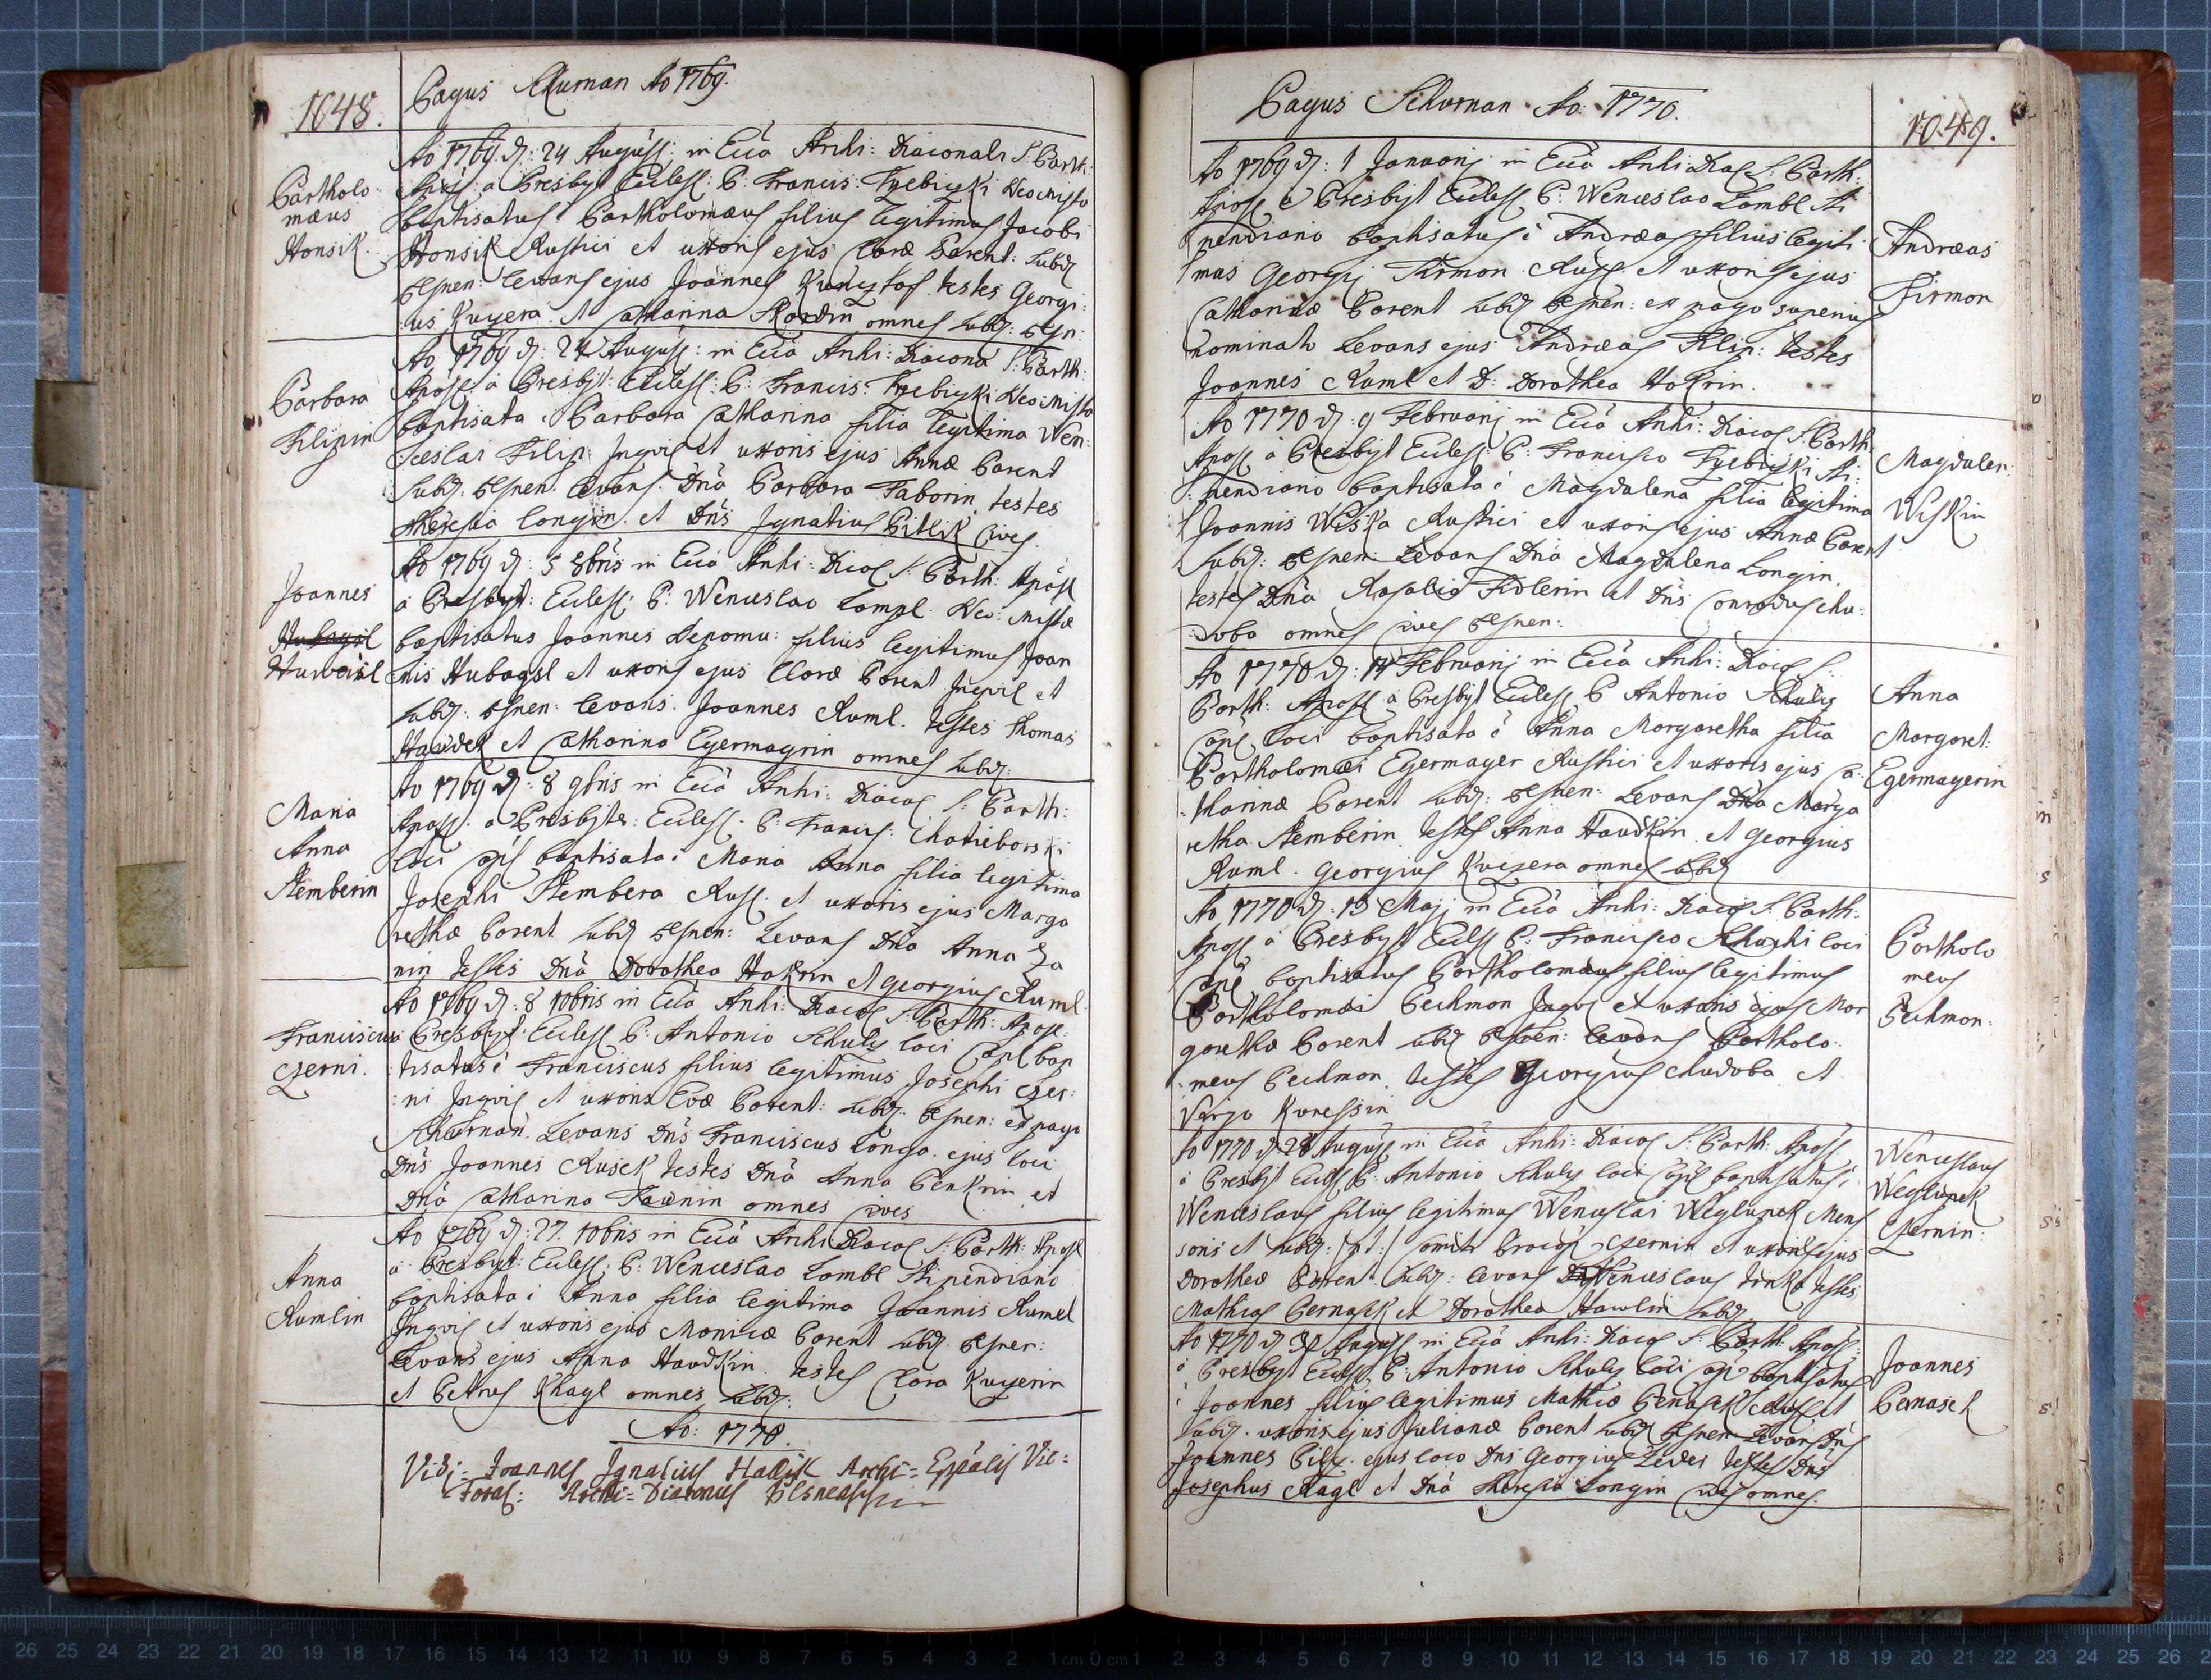 1048.
Pagus Skurnan Ao 1769.
Ao 1769 d: 24 August: in Ecia Archi: Diaconali S: Barth:
Bartholo
mæus
Honsik
Apost: a Presbyt Eccles: P: Francis: Trzebiczki Neo Mista
baptisatus Bartholomæus filius legitimus Jacobi
Honsik Rustici et uxoris ejus Claræ Parent: subd
Plsnen: levans ejus Joannes testes Georgi:
us Kuczera et Catharina omnes subd: Plsn:
Ao 1769 d: 24 August: in Ecia Archi: Diacona S: Barth:
Barbara
Filipin
Apost a Presbyt: Eccles: P: Francis: Trzebiczki Neo Mista
baptisata Barbara Catharina filia legitima Wen:
ceslai Filip Inqvil et uxoris ejus Annæ Parent
subd: Plsnen. levans Dna Barbara Taborin testes
Theresia Longin et Dns Ignatius Bitlik cives.
Ao 1769 d: 5 8bris in Ecia Archi: Diacol S: Barth: Apost
Joannes
Hubaysl
Huwaisl
a Presbyt: Eccles: P: Wenceslao Lompl. Neo: Mistæ
baptisatus Joannes Nepomu: filius legitimus Joan
nis Hubaysl et uxoris ejus Claræ Parent Inqvil et
subd: Plsnen: levans. Joannes Ruml. testes Thomas
Hawdek et Catharina Egermayrin omnes subd:
Ao 1769 d: 8 9bris in Ecia Archi: Diacol S: Barth:
Maria
Anna
Stemberin
Apost. a Presbyter: Eccles. P: Francis: Chotieborski
loci Capl baptisata i Maria Anna filia legitima
Josephi Stembera Rust. et uxoris ejus Marga
rethæ Parent subd Plsnen: Levans Dna Anna Za
nin testes Dna Dorothea Hakrin et Georgius Ruml
Ao 1769 d: 8 10bris in Ecia Archi: Diacol S: Barth: Apost:
Franciscus
Czerni.
a Presbyt: Eccles P: Antonio Schulz loci Capl bap
tisatus i Franciscus filius legitimus Josephi Czer:
ni Inqvil et uxoris Evæ Parent: subd: Plsnen: ex pago
Skurnan. Levans Dns Franciscus Longo. ejus loci
Dns Joannes Rusek testes Dna Anna Penkrin et
Dna Catharina omnes cives
Ao 1769 d: 27. 10bris in Ecia Archi Diacol S: Barth: Apost
Anna
Rumlin
a Presbyt: Eccles: P: Wenceslao Lombl Stipendiano
baptisata i Anna filia legitima Joannis Rumel
Inqvil et uxoris ejus Monicæ Parent subd. Plsnen:
Levans ejus Anna Hawdkin. testes Clara Kuczerin
et Petrus Khagl omnes subd:
Ao: 1770.
Vidi: Joannes Ignatius Archi= Eppalis Vic=
Foral: Archi= Diaconus Plsnensis
Pagus Schurnan Ao: 1770.
1049.
Ao 1769 d: 1 Januarij in Ecia Archi Diac S: Barth:
Apost a Presbyt Eccles P: Wenceslao Lombl Sti
pendiano baptisatus i Andreas filius legiti
mus Georgij Tirmon Rust. et uxoris ejus
Catharinæ Parent subd Plsnen: ex pago superius
nominato Levans ejus Andreas Filip: testes
Joannes Ruml et D: Dorothea Hakrin.
Andreas
Tirmon
Ao 1770 d: 9 Februarij in Ecia Archi: Diacol S: Barth
Apost a Presbyt Eccles: P: Francisco Trzebiczki Sti:
pendiano baptisata i Magdalena filia legitima
Joannis Wiska Rustici et uxoris ejus Annæ Parent
subd: Plsnen: Levans Dna Magdalena Longin.
testes Dna Rosalia Fidlerin et Dns Conradus Chu:
doba omnes cives Plsnen:
Magdalen:
Wiskin
Ao 1770 d: 14 Februarij in Ecia Archi: Diacol S:
Barth: Apost a Presbyt Eccles P Antonio Schulz
Capl loci baptisata i Anna Margaretha filia
Bartholomæi Egermayer Rustici et uxoris ejus Ca:
tharinæ Parent subd: Plsnen: Levans Dna Marga
retha Stemberin. testes Anna Hawdkin et Georgius
Ruml. Georgius Kuczera omnes subd
Anna
Margaret:
Egermayerin
Ao 1770 d: 15 Maij in Ecia Archi: Diacol S: Barth:
Apost a Presbyt Eccles P: Francisco loci
Capl baptisatus Bartholomæus filius legitimus
Bartholomæi Bechmon Inqvl et uxoris ejus Mar
garethæ Parent subd Plsnen: levans Bartholo:
meus Bechmon. testes Georgius Chudoba et
Bartholo
meus
Bechmon:
Ao 1770 d 28 August in Ecia Archi: Diacol S: Barth: Apost
a Presbyt Eccles P: Antonio Schulz loci Capl baptisatus i
Wenceslaus filius legitimus Wenceslai Weglupek Mens
soris et subd: Comitis Czernin et uxoris ejus
Dorotheæ Parent subd: levans Wenceslaus testes
Mathias Bernasek et Dorothea Hawlin subd
Wenceslaus
Weglupek
Czernin:
Ao 1770 d 30 August in Ecia Archi: Diacol S: Barth: Apost:
a Presbyt Eccles P: Antonio Schulz loci Capl baptisatus
i Joannes filius legitimus Mathiæ Bernasek et
subd. uxoris ejus Julianæ Parent subd Plsnen Levans Dns
Joannes ejus loco Dns Georgius testes Dns
Josephus Khagl et Dna Theresia Longin cives omnes.
Joannes
Bernasek